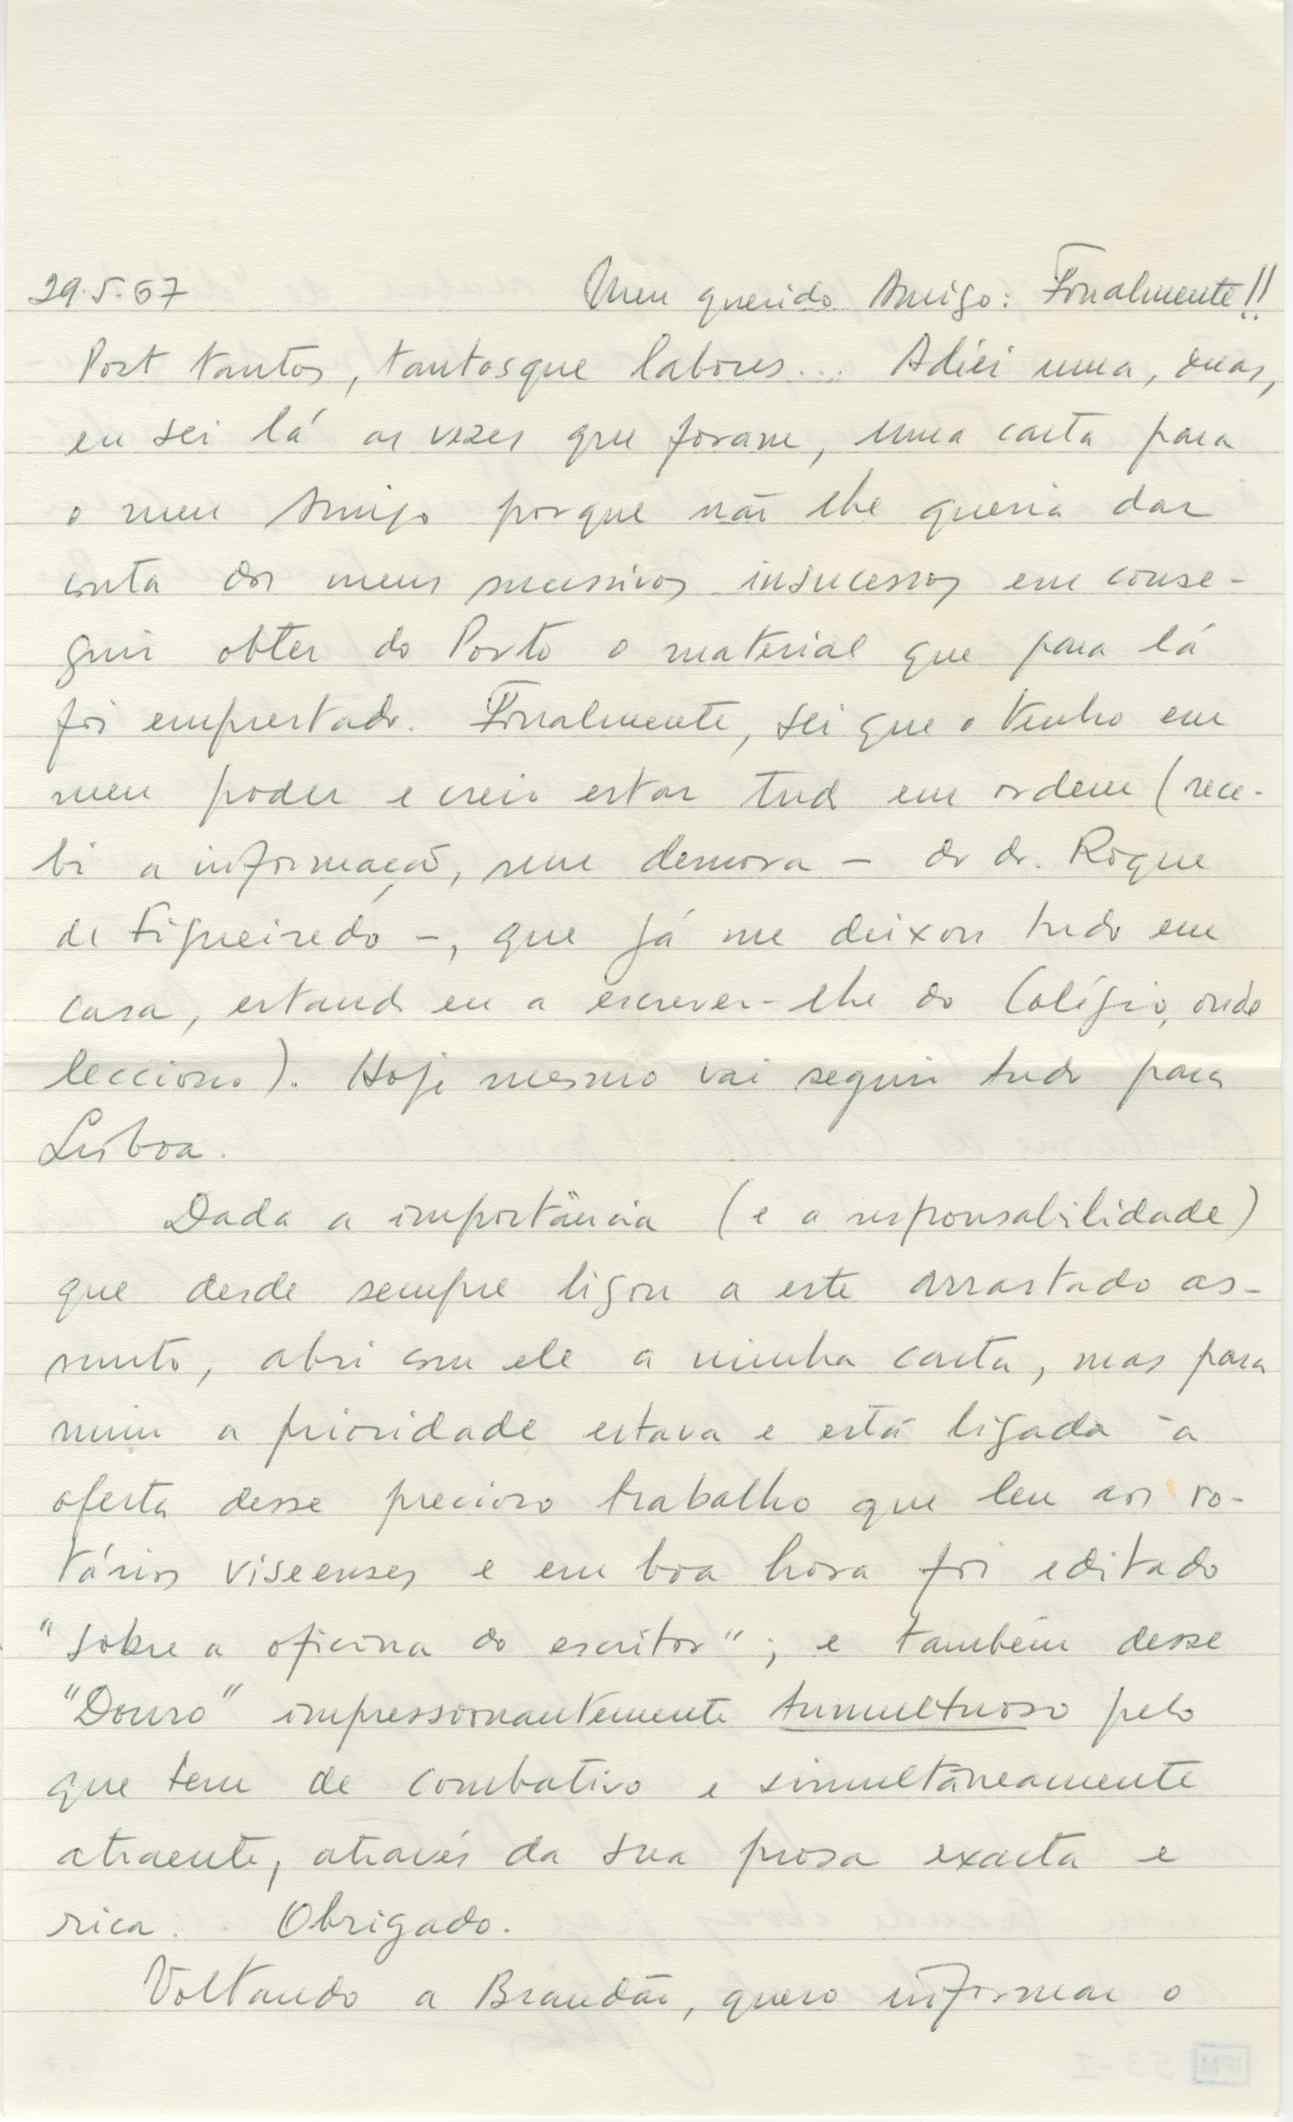 29.5.67 Meu querido Amigo: Finalmente!!
Post tantos, tantosque labores... Adiei uma, duas,
eu sei lá as vezes que foram, uma carta para
o meu Amigo porque não lhe queria dar
conta dos meus sucessivos insucessos em conse-
guir obter do Porto o material que para lá
foi emprestado. Finalmente, sei que o tenho em
meu poder e creio estar tudo em ordem (rece-
bi a informação, sem demora - do dr. Roque
de Figueiredo -, que já me deixou tudo em
casa, estando eu a escrever-lhe do Colégio, onde
lecciono). Hoje mesmo vai seguir tudo para
Lisboa.
Dada a importância (e a responsabilidade)
que desde sempre ligou a este arrastado as-
sunto, abri com ele a minha carta, mas para
mim a prioridade estava e está ligada à
oferta desse precioso trabalho que leu aos ro-
tários viseenses e em boa hora foi editado
"Sobre a oficina do escritor"; e também desse
"Douro" impressionantemente tumultuoso pelo
que tem de combativo e simultâneamente
atraente, através da sua prosa exacta e
rica. Obrigado.
Voltando a Brandão, quero informar o